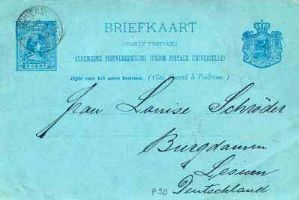 BRIEFKAART
(CARTE POSTALE)
ALGEMEENE POSTVEREENIGING (UNION POSTALE UNIVERSELLE)
Zijde voor het adres bestemd. (Côté réservé à l'adresse.)
Frau Louise Schröder
Burgdamm
Lesum
Deutschland
P 20